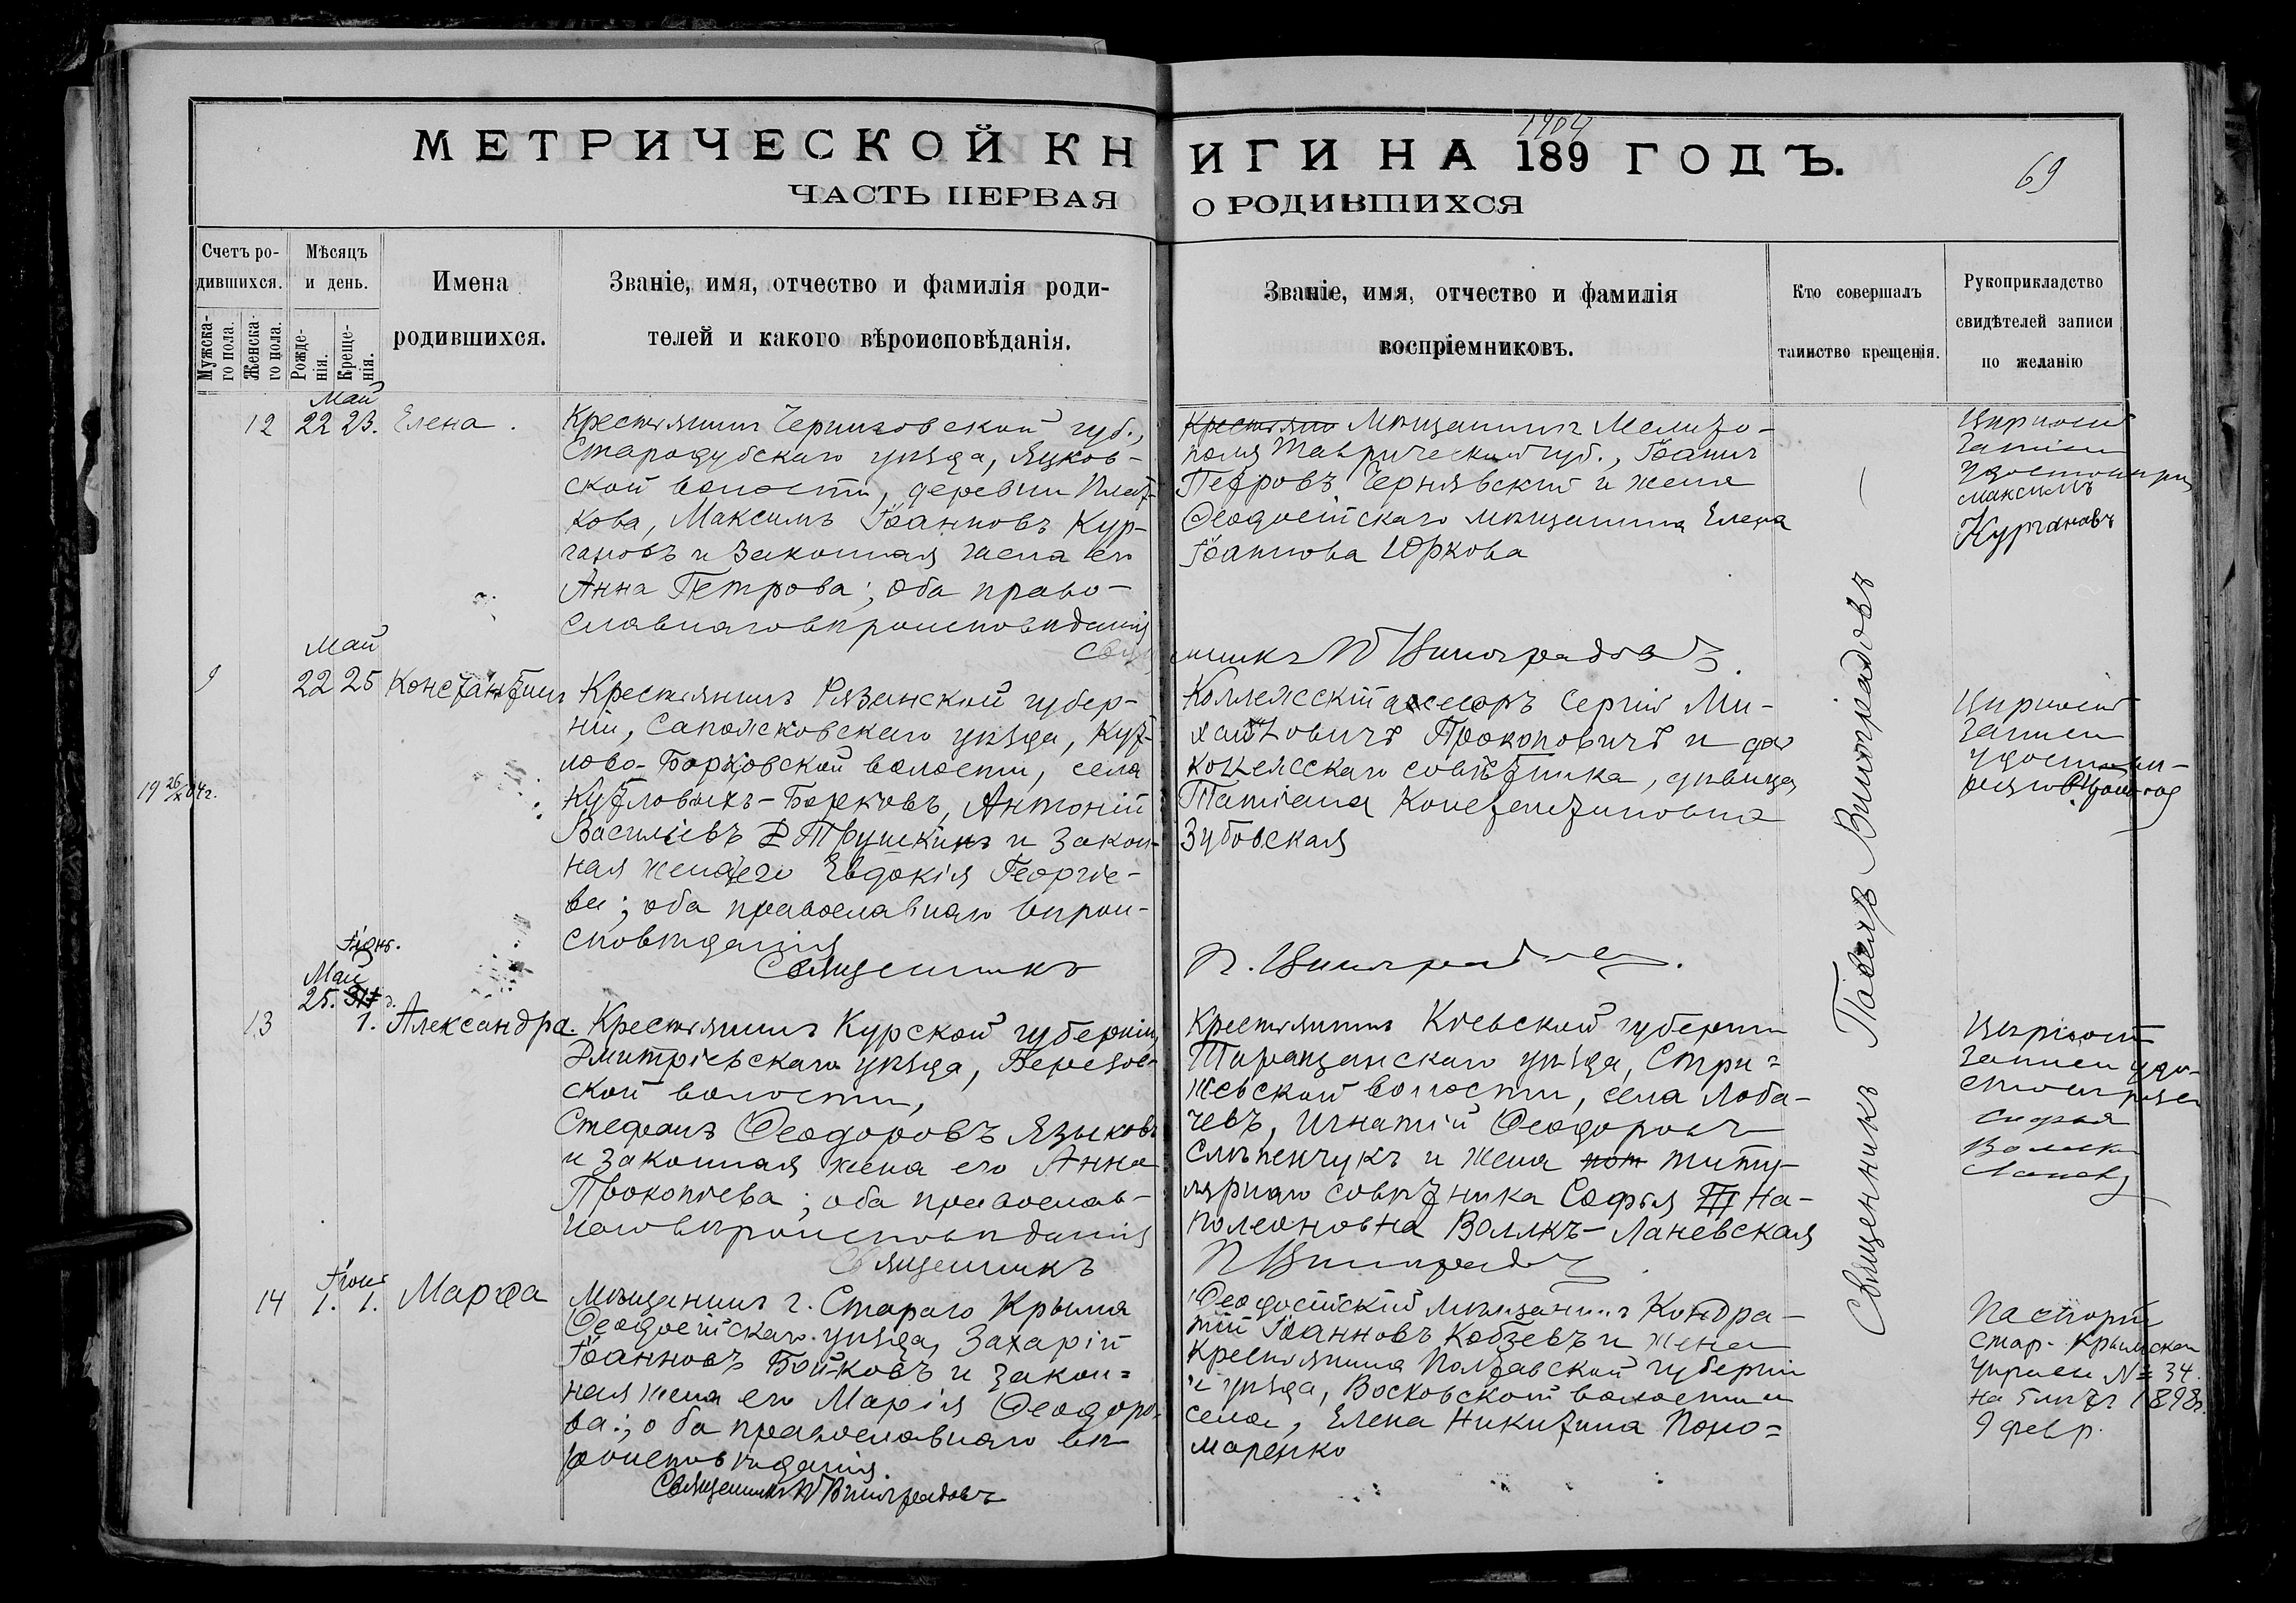 МЕТРИЧЕСКОЙ КНИГИ НА 189 ГОДЪ.
1904
69
ЧАСТЬ ПЕРВАЯ О РОДИВШИХСЯ
Счетъ родившихся.
Мужскаго пола.
Женскаго пола.
Мѣсяцъ и день.
Рожденія.
Крещенія.
Имена родившихся.
Званіе, имя, отчество и фамилія роди-
телей и какого вѣроисповѣданія.
Званіе, имя, отчество и фамилія
воспріемниковъ.
Кто совершалъ
таинство крещенія.
Рукоприкладство
свидѣтелей записи
по желанію
Май
12 22 23. Елена.
Крестьянинъ Черниговской губ.,
Стародубскаго уѣзда, Яцков-
ской волости, деревни
кова, Максимъ Іоанновъ Кур-
гановъ и законная жена его
Анна Петрова; оба право-
славнаго вѣроисповѣданія
Крестьяни Мѣщанинъ Мелито-
поля Таврической губ., Іоаннъ
Петровъ Чернявскій и жена
Ѳеодосійскаго мѣщанина Елена
Іоаннова Юркова
Вѣрность
записи
удостовѣряю
Максимъ
Кургановъ
Священникъ П Виноградовъ.
Май
9 22 25 Константинъ
19 26/X 04 г.
Крестьянинъ Рязанской губер-
ніи, Сапожковскаго уѣзда, Кут-
лово-Борковской волости, села
Кутловыхъ-Борковъ, Антоній
Василіевъ Трушкинъ и закон-
ная жена его Евдокія Георгіе-
ва; оба православнаго вѣрои-
сповѣданія
Коллежскій ассесоръ Сергій Ми-
хайловичъ Прокоповичъ и дочь
коллежскаго совѣтника, дѣвица
Татіана Константиновна
Зубовская
Вѣрность
записи
удостовѣ-
ряю
Священникъ П. Виноградовъ.
Іюнь.
Май
25. 31
13 1. Александра.
Крестьянинъ Курской губерніи,
Дмитріевскаго уѣзда, Березов-
ской волости,
Стефанъ Ѳеодоровъ Языковъ
и законная жена его Анна
Прокопіева; оба православ-
наго вѣроисповѣданія
Крестьянинъ Кіевской губерніи
Таращанскаго уѣзда, Стри=
жевской волости, села Лоба-
чевъ, Игнатій Ѳеодоровъ
Слѣпенчукъ и жена пот титу-
лярнаго совѣтника Софья На-
полеоновна Волкъ-Ланевская
Вѣрность
записи удо-
стовѣряю
Софья
Волкъ
Ланевск
Священникъ П Виноградовъ.
Іюнь
14 1. 1. Марѳа
Мѣщанинъ г. Стараго Крыма
Ѳеодосійскаго уѣзда, Захарій
Іоанновъ Бойковъ и закон=
ная жена его Марія Ѳеодоро-
ва; оба православнаго вѣ-
роисповѣданія.
Священникъ П Виноградовъ
Ѳеодосійскій мѣщанинъ Кондра-
тій Іоанновъ Кобзевъ и жена
крестьянина Полтавской губерніи
и уѣзда, Восковской волости и
села, Елена Никитина Поно=
маренко
Паспортъ
Стар-Крымской
Управы № 34.
на 5 лѣтъ 1898 г.
9 февр.
Священникъ Павелъ Виноградовъ